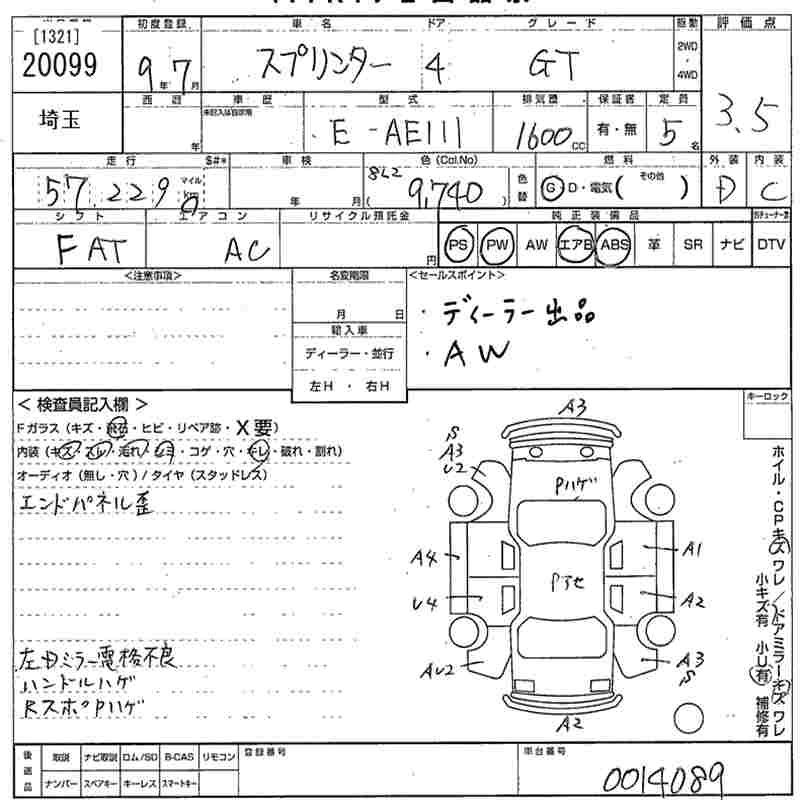 [1321]
20099
初度登録 車名 ドア グレード 駆動 評価点
9年7月 スプリンター 4 GT 2WD・4WD 3.5
埼玉
西暦 車歴 型式 排気量 保証書 定員
年 未記入は自家用 E-AE111 1600cc 有・無 5名
走行 S#* 車検 色(Col.No) 色替 燃料 外装 内装
57,229 マイル km 年 月 8L2 (9,740) G D・電気( その他 ) D C
シフト エアコン リサイクル預託金 純正装備品
FAT AC 円 PS PW AW エアB ABS 革 SR ナビ DTV
<注意事項> 名変期限 <セールスポイント>
月 日 ・ディーラー出品
輸入車 ・AW
ディーラー・並行
左H ・ 右H
< 検査員記入欄 > キーロック
Fガラス(キズ・飛石・ヒビ・リペア跡・X要)
内装(キズ・スレ・汚れ・シミ・コゲ・穴・キレ・破れ・割れ)
オーディオ(無し・穴)/タイヤ(スタッドレス)
エンドパネル歪
左ドミラー電格不良
ハンドルハゲ
RスポPハゲ
A3
S
A3
U2
Pハゲ
A4 A1
U4 Pアセ A2
AU2 A3
S
A2
ホイル・CPキズ ワレ/ドアミラーキズ ワレ
小キズ有 小U有 補修有
後送品 取説 ナビ取説 ロム/SD B-CAS リモコン 登録番号 車台番号
ナンバー スペアキー キーレス スマートキー 0014089